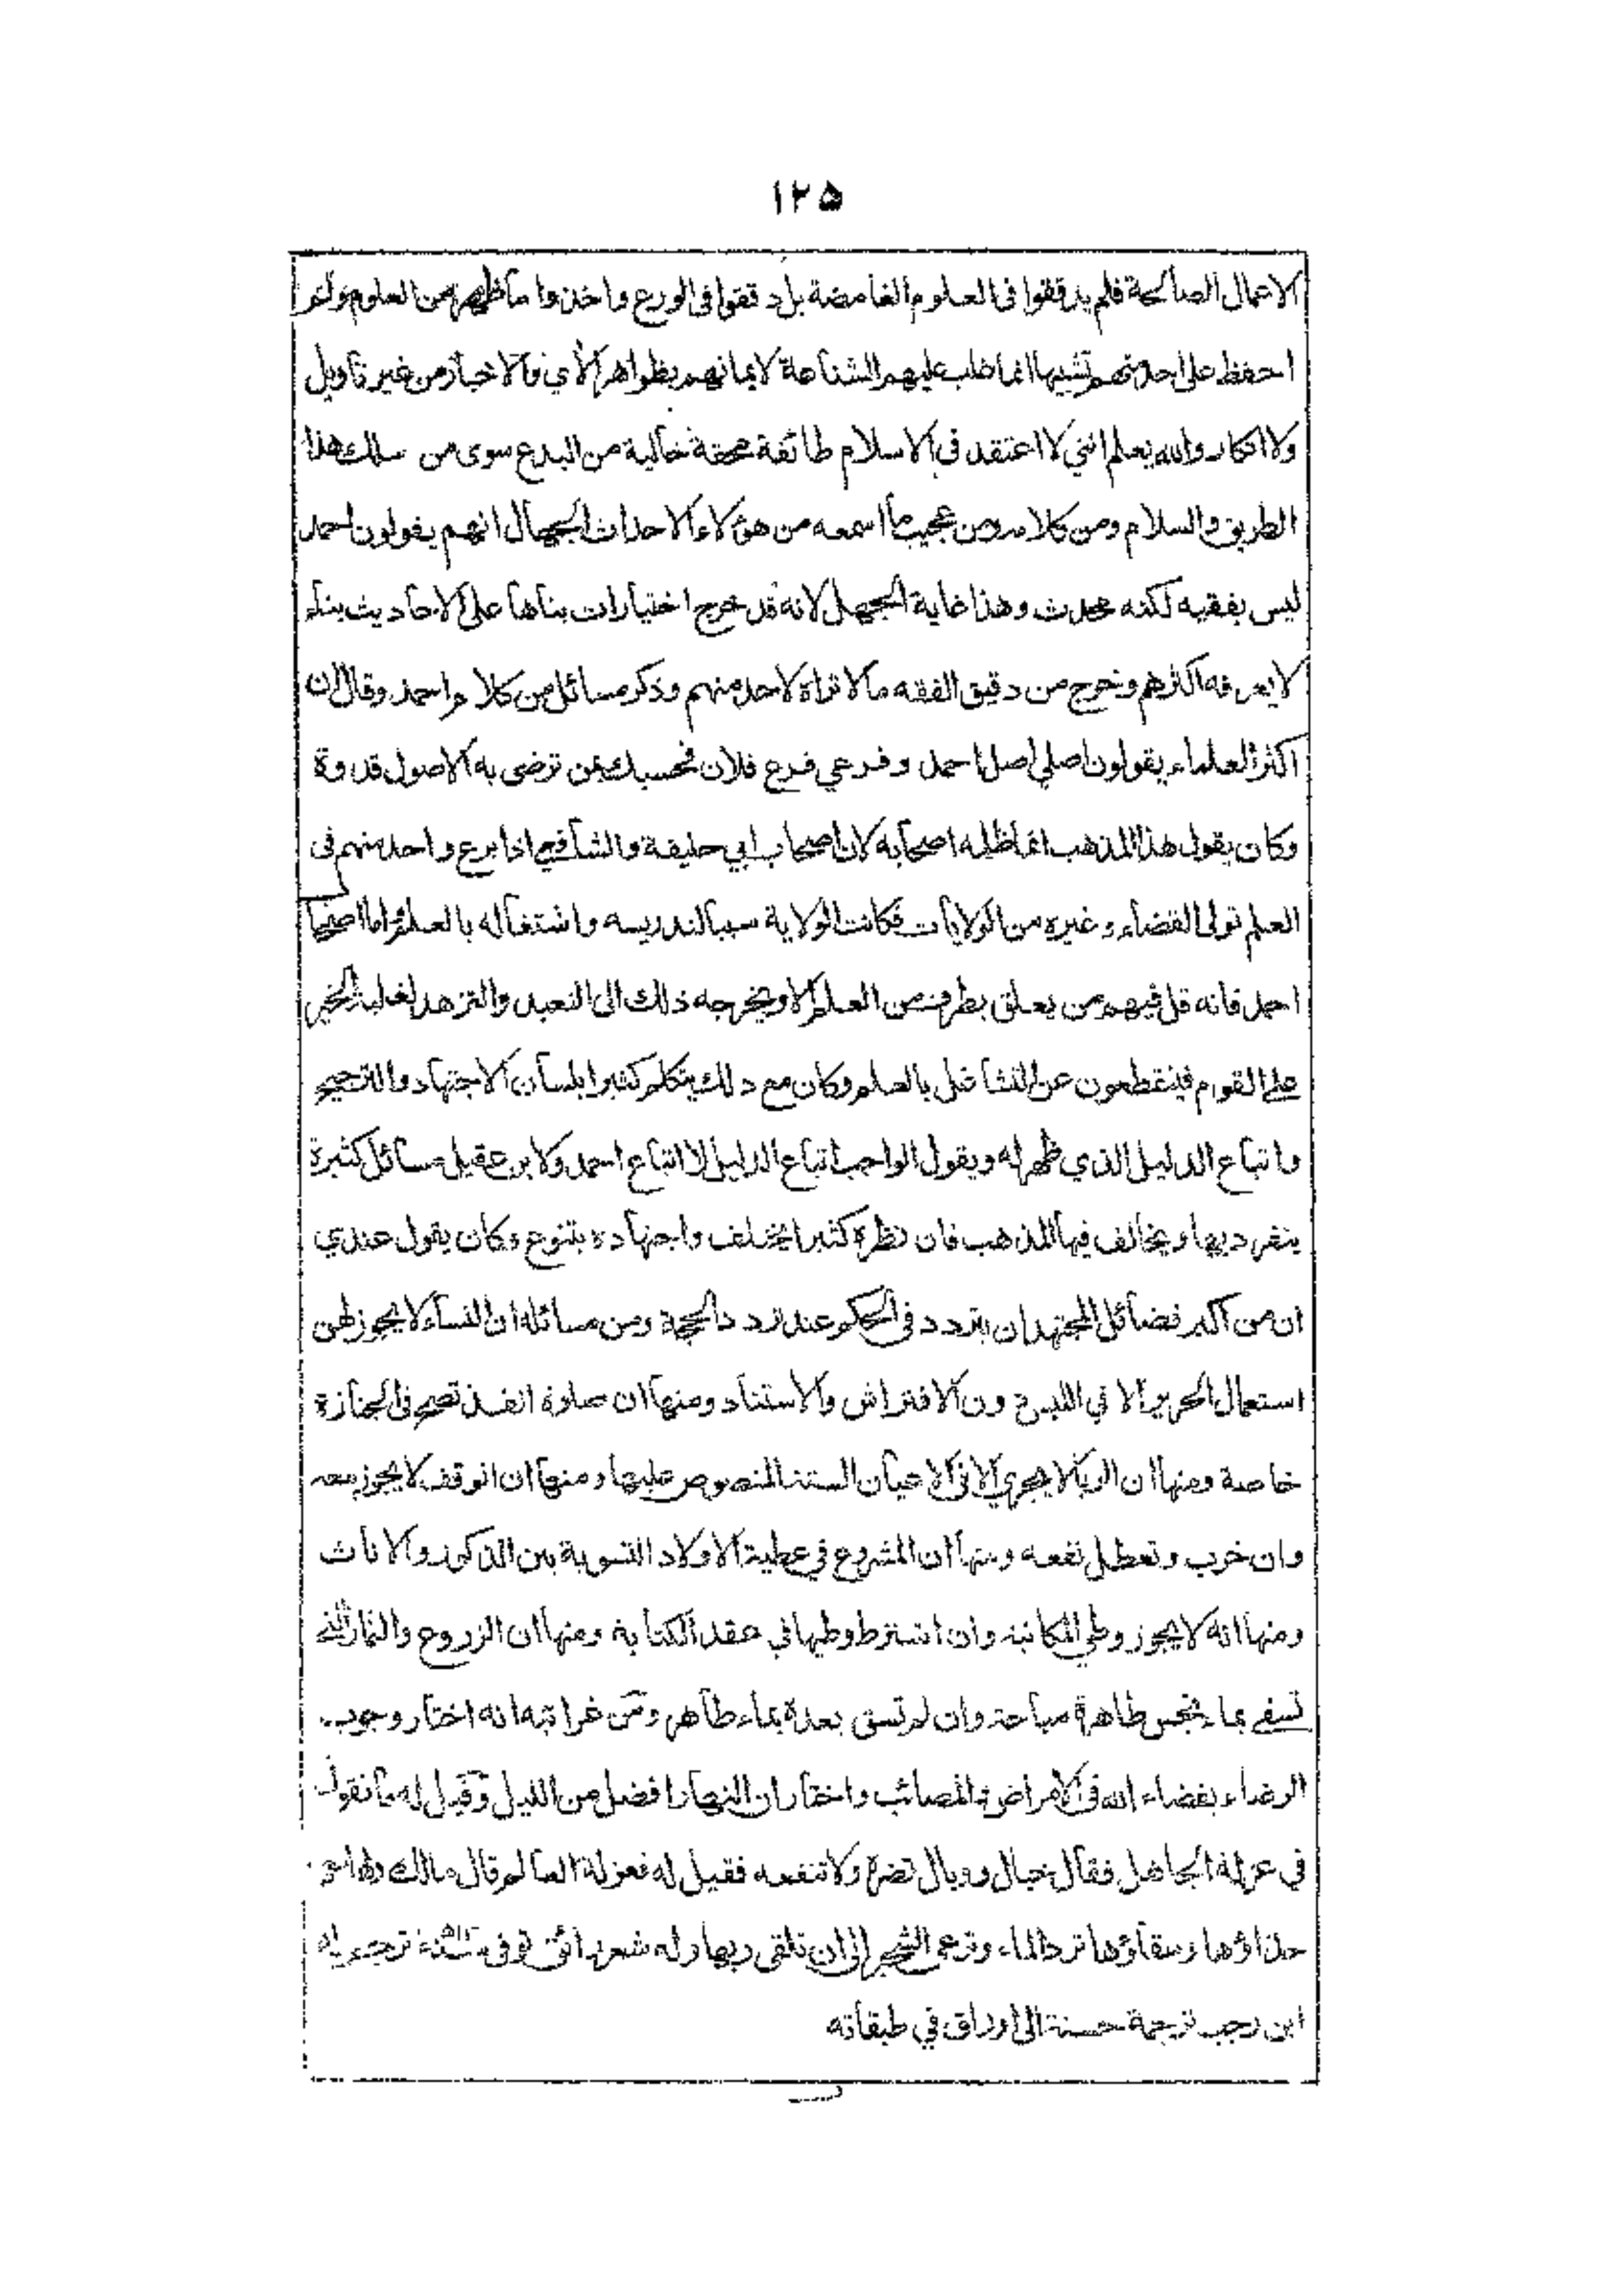 ١٢٥
الاعمال الصالحة فلم يدققوا فى العلوم الغامضة بل دققوا فى الورع واخذوا ما ظهر من العلوم ولم
احفظ على احد منهم تشبيها انما غلب عليهم الشناعة لايمانهم بظواهر الآي والاخبار من غير تأويل
ولا انكار والله يعلم انني لا اعتقد فى الاسلام طائفة محقة خالية من البدع سوى من سلك هذا
الطريق والسلام ومن كلامه ومن عجيب ما اسمعه من هؤلاء الاحداث الجهال انهم يقولون احمد
ليس بفقيه لكنه محدث وهذا غاية الجهل لانه قد خرج اختيارات بناها على الاحاديث بناء
لا يعرفه اكثرهم وخرج من دقيق الفقه ما لا تراه لاحد منهم وذكر مسائل من كلام احمد وقال ان
اكثر العلماء يقولون اصلي اصل احمد وفرعي فرع فلان فحسبك بمن ترضى به الاصول قدوة
وكان يقول هذا المذهب انما ظلمه اصحابه لان اصحاب ابي حنيفة والشافعي اذا برع واحد منهم فى
العلم تولى القضاء وغيره من الولايات فكانت الولاية سببا لتدريسه واشتغاله بالعلم فاما اصحاب
احمد فانه قل فيهم من يعلق بطرف من العلم الا ويخرجه ذلك الى التعبد والتزهد لغلبة الخير
على القوم فينقطعون عن التشاغل بالعلم وكان مع ذلك يتكلم كثيرا بلسان الاجتهاد والترجيح
واتباع الدليل الذي ظهر له ويقول الواجب اتباع الدليل لا اتباع احمد ولابن عقيل مسائل كثيرة
ينفرد بها ويخالف فيها المذهب فان نظره كثيرا يختلف واجتهاده يتنوع وكان يقول عندي
ان من اكبر فضائل المجتهد ان يتردد فى الحكم عند تردد الحجة ومن مسائله ان النساء لا يجوز لهن
استعمال الحرير الا في اللبس دون الافتراش والاستناد ومنها ان صلوة الفذ تصح فى الجنازة
خاصة ومنها ان الربا لا يجري الا فى الاعيان الستة المنصوص عليها ومنها ان الوقف لا يجوز بيعه
وان خرب وتعطل نفعه ومنها ان المشروع في عطية الاولاد التسوية بين الذكور والاناث
ومنها انه لا يجوز وطي المكاتبة وان اشترط وطيها في عقد الكتابة ومنها ان الزروع والثمار التي
تسقى بماء نجس طاهرة مباحة وان لم تسق بعده بماء طاهر ومن غرائبه انه اختار وجوب
الرضاء بقضاء الله فى الامراض والمصائب واختار ان النهار افضل من الليل وقيل له ما تقول
في عزلة الجاهل فقال خبال ووبال تضره ولا تنفعه فقيل له فعزلة العالم قال مالك ولها معها
حذاؤها وسقاؤها ترد الماء وترعى الشجر الى ان تلقى ربها وله شعر رائق توفى ترجم له
ابن رجب ترجمة حسنة الى اوراق في طبقاته